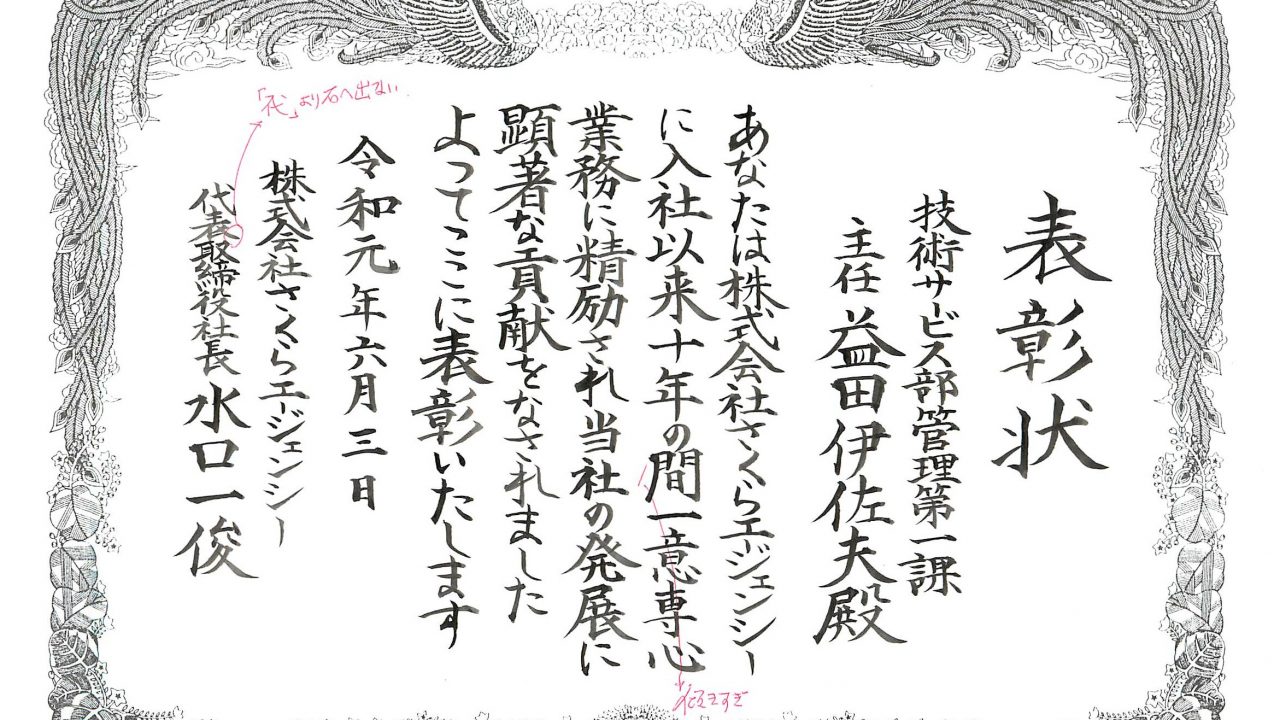 表彰状
技術サービス部管理第一課
主任 益田伊佐夫殿
あなたは株式会社さくらエージェンシー
に入社以来十年の間一意専心
業務に精励され当社の発展に
顕著な貢献をなされました
よってここに表彰いたします
令和元年六月三日
株式会社さくらエージェンシー
代表取締役社長 水口一俊
「代」より右へ出ない